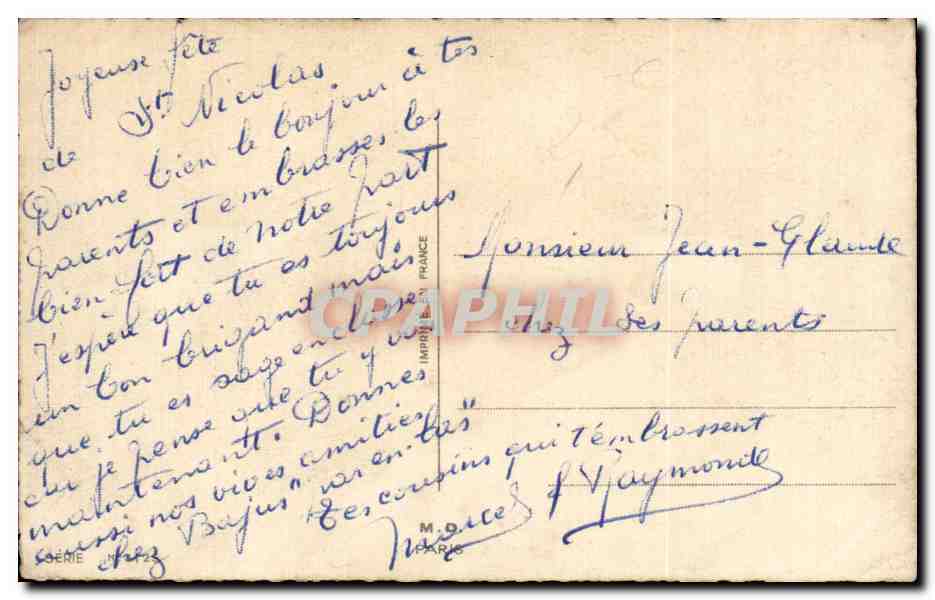 Joyeuse fête
de St Nicolas
Donne bien le bonjour à tes
parents et embrasses les
bien fort de notre part
J'espère que tu es toujours
un bon brigand mais
que tu es sage en classe
car je pense que tu y vas
maintenant. Donnes
aussi nos vives amitiés
chez "Bajus" par en bas"
Tes cousins qui t'embrassent
Marcel & Raymonde
Monsieur Jean-Claude
chez ses parents
IMPRIMÉ EN FRANCE
CPAPHIL
M.D.
PARIS
SÉRIE